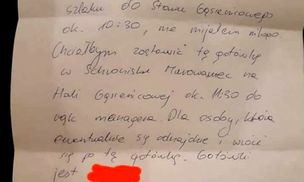 szlaku do Stawu Gąsienicowego
ok. 10:30, nie mijałem nikogo.
Chciałbym zostawić tę gotówkę
w Schronisku Murowaniec na
Hali Gąsienicowej ok. 11:30 do
rąk menagera. Dla osoby, która
ewentualnie się odnajdzie i wróci
się po tę gotówkę. Gotówki
jest